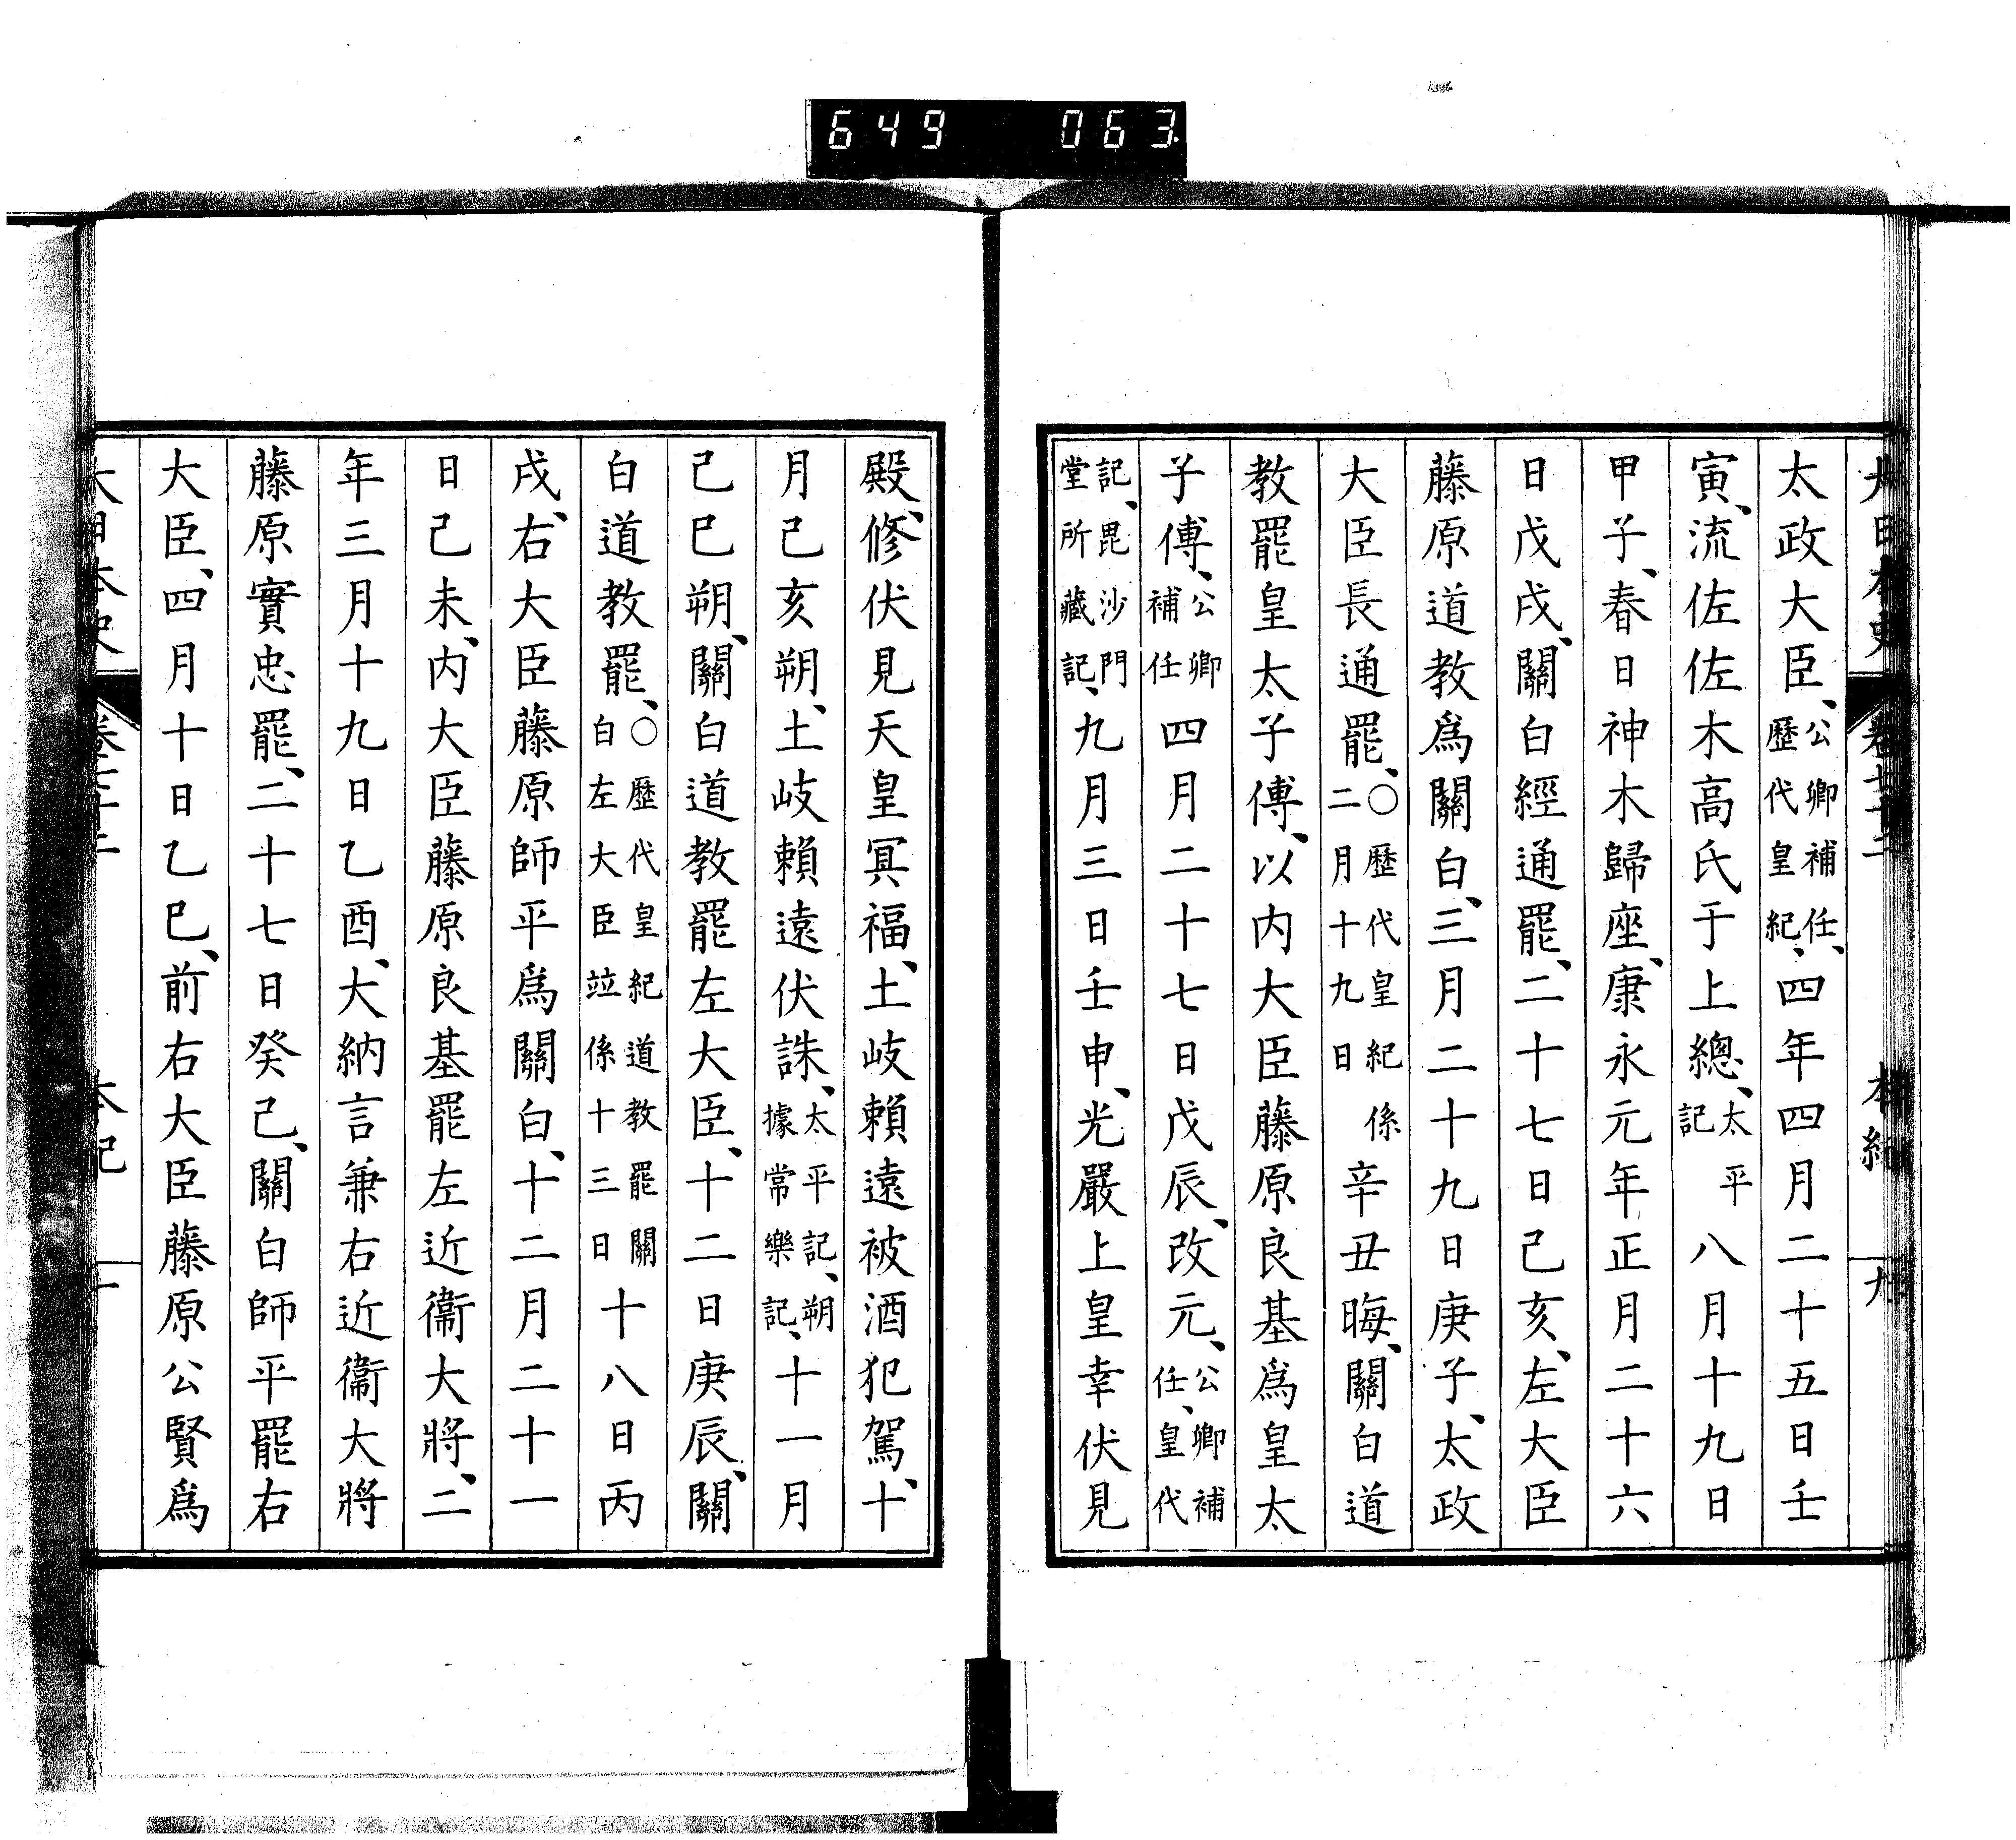 649 063
大日本史 卷七十二 本紀 九
太政大臣、公卿補任、歷代皇紀、四年四月二十五日壬
寅、流佐佐木高氏于上總、太平記八月十九日
甲子、春日神木歸座、康永元年正月二十六
日戊戌、關白經通罷、二十七日己亥、左大臣
藤原道教爲關白、三月二十九日庚子、太政
大臣長通罷、○歷代皇紀係二月十九日辛丑晦、關白道
教罷皇太子傅、以内大臣藤原良基爲皇太
子傅、公卿補任四月二十七日戊辰、改元、公卿補任、皇代
記、毘沙門堂所藏記、九月三日壬申、光嚴上皇幸伏見
殿、修伏見天皇冥福、土岐賴遠被酒犯駕、十
月己亥朔、土岐賴遠伏誅、太平記、朔據常樂記、十一月
己巳朔、關白道教罷左大臣、十二日庚辰、關
白道教罷、○歷代皇紀道教罷關白左大臣竝係十三日十八日丙
戌、右大臣藤原師平爲關白、十二月二十一
日己未、内大臣藤原良基罷左近衞大將、二
年三月十九日乙酉、大納言兼右近衞大將
藤原實忠罷、二十七日癸巳、關白師平罷右
大臣、四月十日乙巳、前右大臣藤原公賢爲
大日本史 卷七十二 本紀